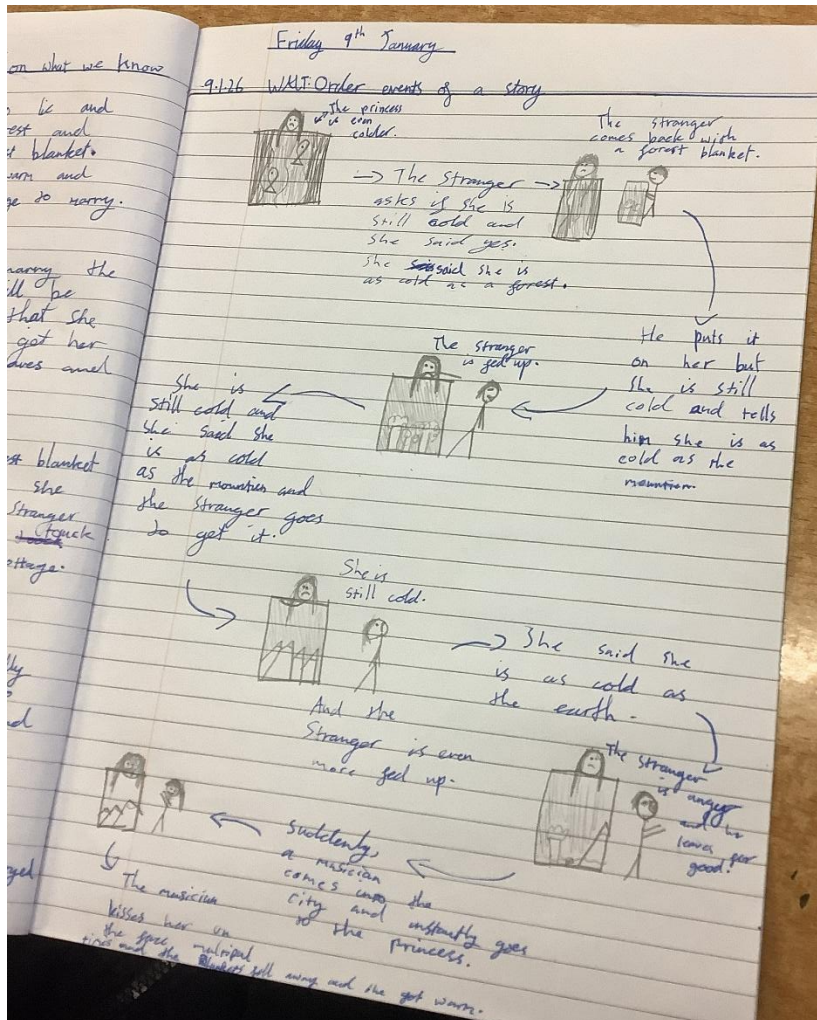 on what we know
lie and
est and
blanket.
arm and
ge to marry.
marry the
ill be
that she
got her
aves and
st blanket
she
Stranger
touch
ottage.
lly
ed
Friday 9th January
9.1.26 WALT: Order events of a story
The princess
is even
colder.
→ The Stranger →
asks if she is
still cold and
she said yes.
She said she is
as cold as a forest.
The stranger
comes back with
a forest blanket.
He puts it
on her but
she is still
cold and tells
him she is as
cold as the
mountian.
The stranger
is fed up.
She is
still cold and
she said she
is as cold
as the mountien and
the stranger goes
to get it.
She is
still cold.
And the
Stranger is even
more fed up.
→ She said she
is as cold as
the earth.
The stranger
is angry
and he
leaves for
good!
Suddenly,
a musician
comes into the
city and instantly goes
to the princess.
The musician
kisses her on
the face multipul
times and the Blankets fell away and she got warm.